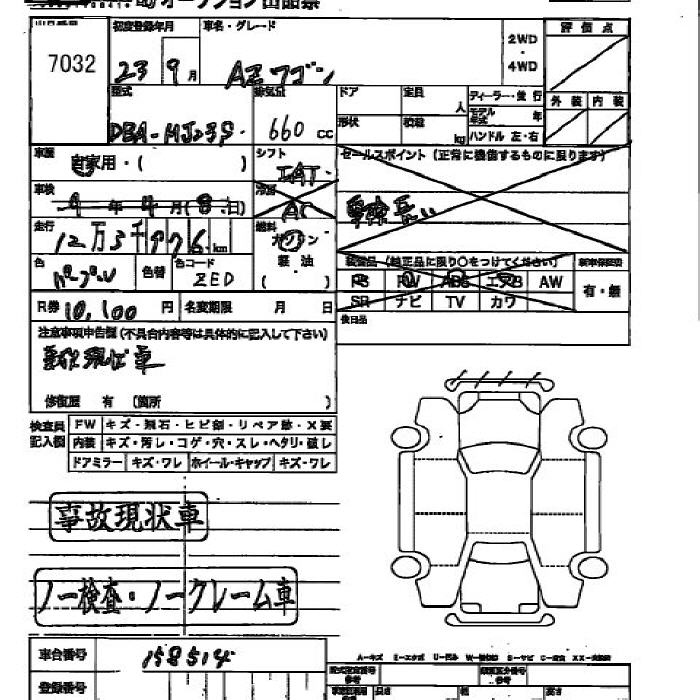 オークション出品票
初度登録年月 車名・グレード 評価点
7032 23 9月 AZワゴン 2WD・4WD
型式 排気量 ドア 定員 人 ディーラー・並行 外装 内装
DBA-MJ23S 660cc 形状 積載 kg モデル年式 年
ハンドル 左・右
車歴 自家用・( ) シフト IAT セールスポイント(正常に機能するものに限ります)
車検 年 4月(8日) 冷房 AC 車検長い
走行 12万3千976km 燃料 ガソリン
軽油
( )
装備品(純正品に限り○をつけてください)
色 パープル 色替 色コード ZED PS PW ABS エアB AW 有・無
R券 10,100円 名変期限 月 日 SR ナビ TV カワ
後日品
注意事項申告欄(不具合内容等は具体的に記入して下さい)
修復歴 有(箇所 )
検査員記入欄 FW キズ・飛石・ヒビ割・リペア跡・X要
内装 キズ・汚し・コゲ・穴・スレ・ヘタリ・破し
ドアミラー キズ・ワレ ホイール・キャップ キズ・ワレ
事故現状車
ノー検査・ノークレーム車
車台番号 158514
登録番号